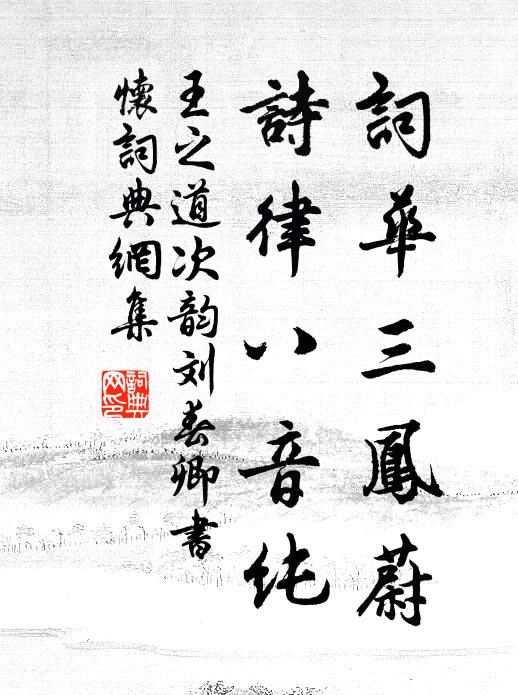 詞華三鳳蔚
詩律八音純
王之道次韵刘春卿書
懷詞典網集
詞典
网印